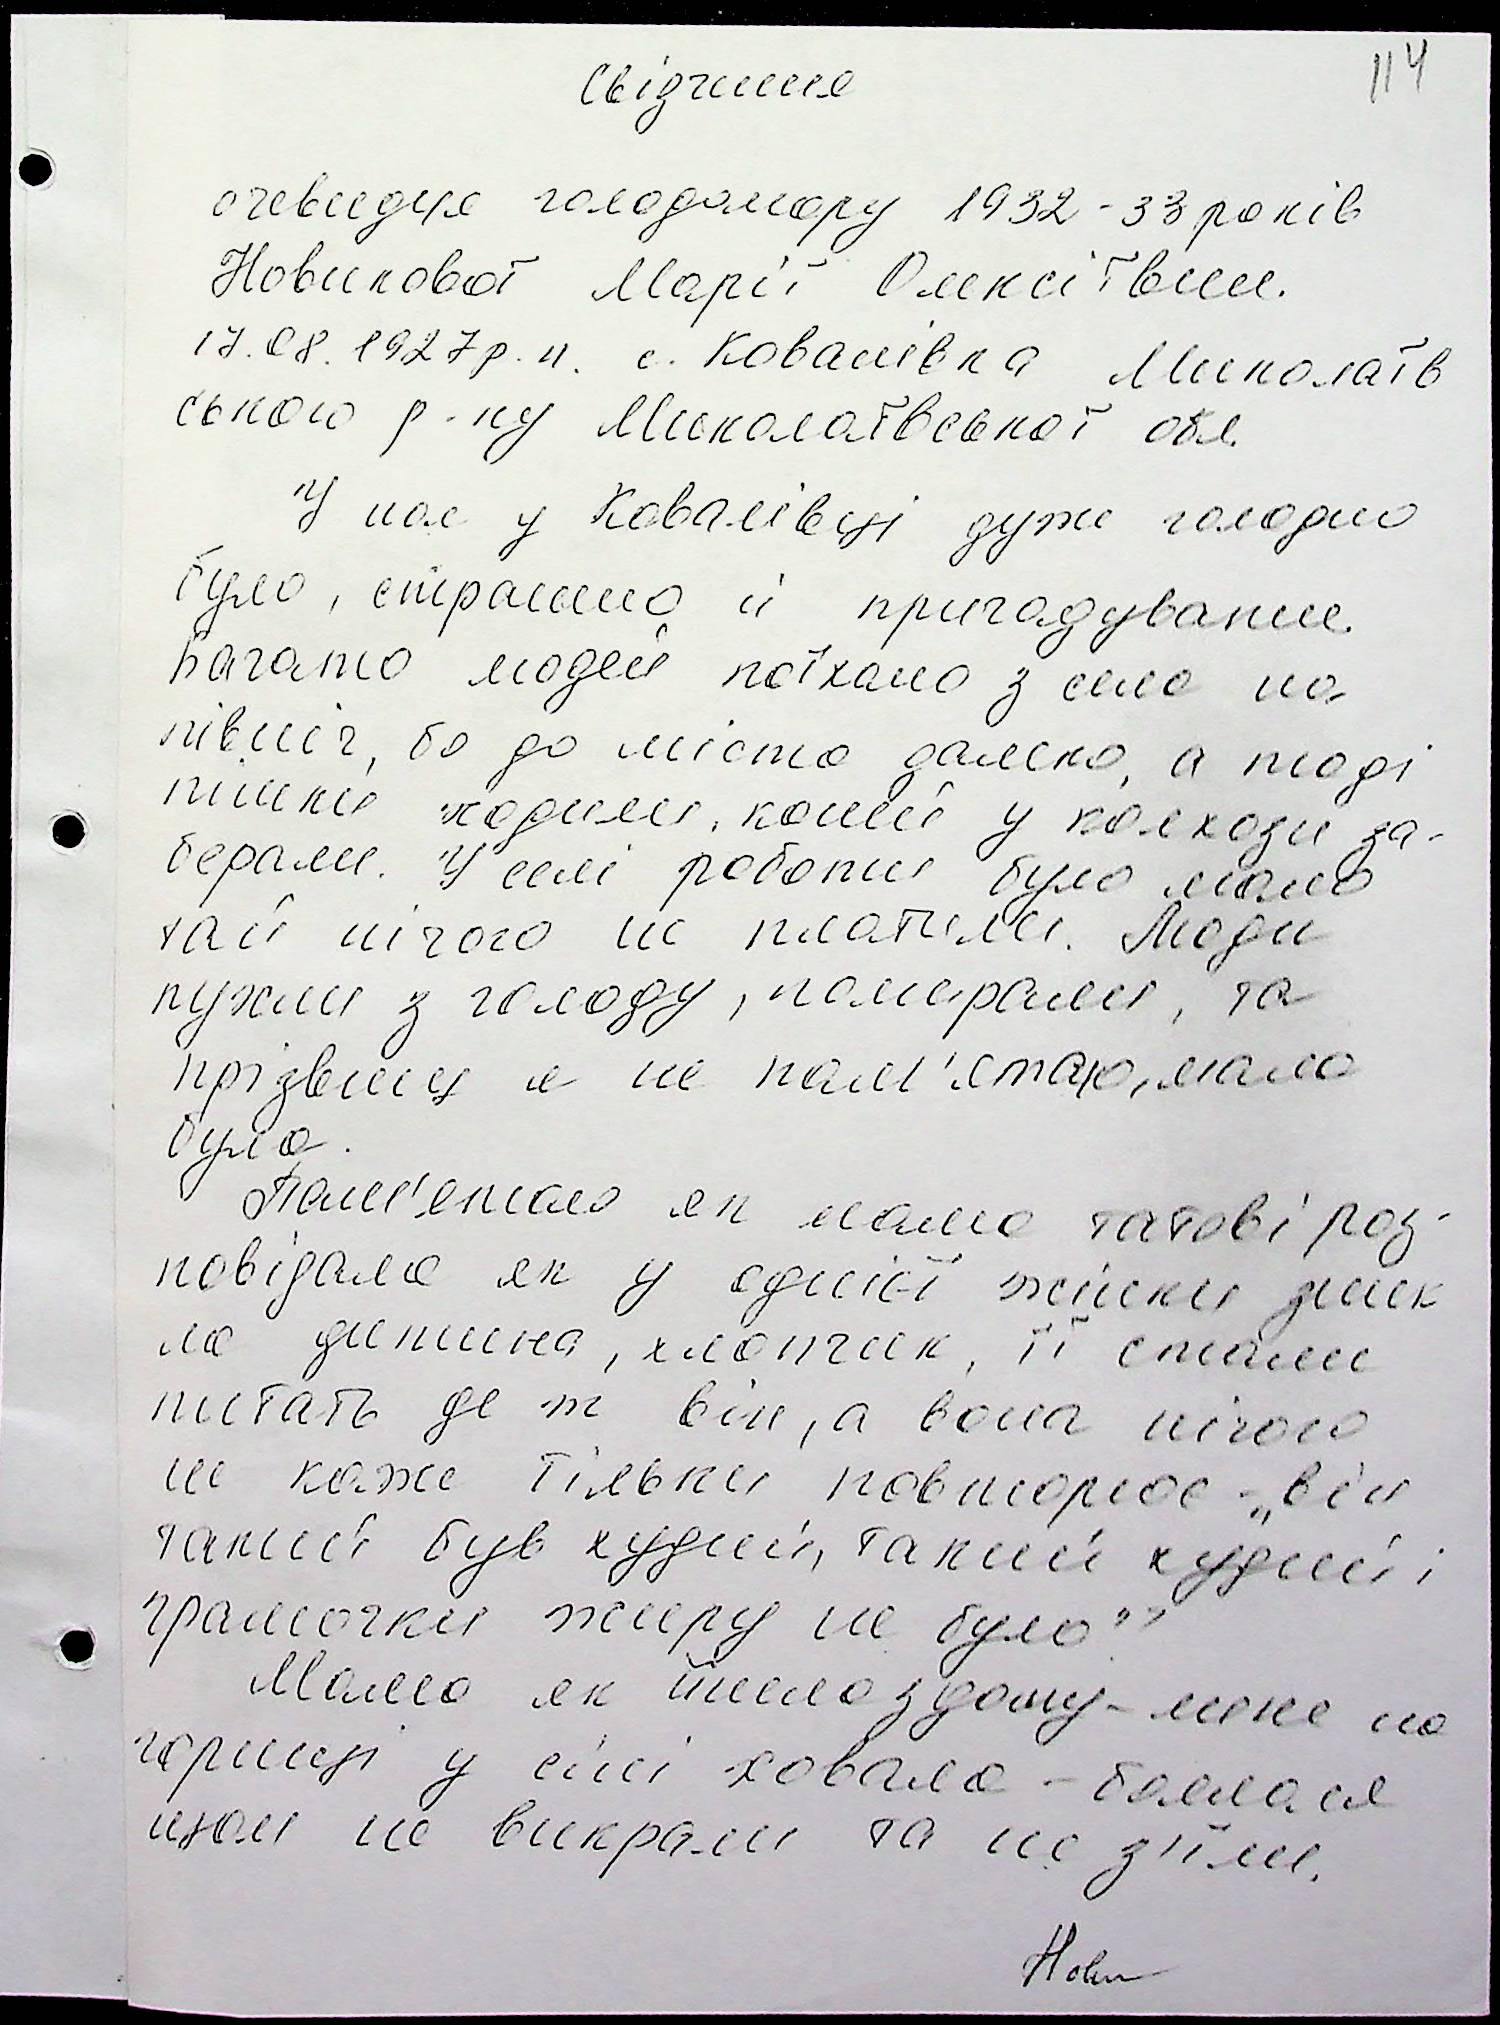 114
Свідчення
очевидця голодомору 1932-33 років
Новикової Марії Олексіївни.
17.08.1927 р.н. с. Ковалівка Миколаїв
ського р-ну Миколаївської обл.
У нас у Ковалівці дуже голодно
було, страшно й пригадувати.
Багато людей поїхало з села на
північ, бо до міста далеко, а тоді
пішки ходили, коней у колхози за-
берали. У селі роботи було мало
тай нічого не платили. Люди
пухли з голоду, померали, та
прізвищ я не пам'ятаю, мала
була.
Пам'ятаю як мама татові роз-
повідала як у однієї жінки зник
ла дитина, хлопчик, її стали
питать де ж він, а вона нічого
не каже тільки повторює - „він
такий був худий, такий худий і
грамочки жиру не було”
Мама як йшла з дому - мене на
горищі у сіні ховала - боялася
щоб не викрали та не з'їли.
Нови